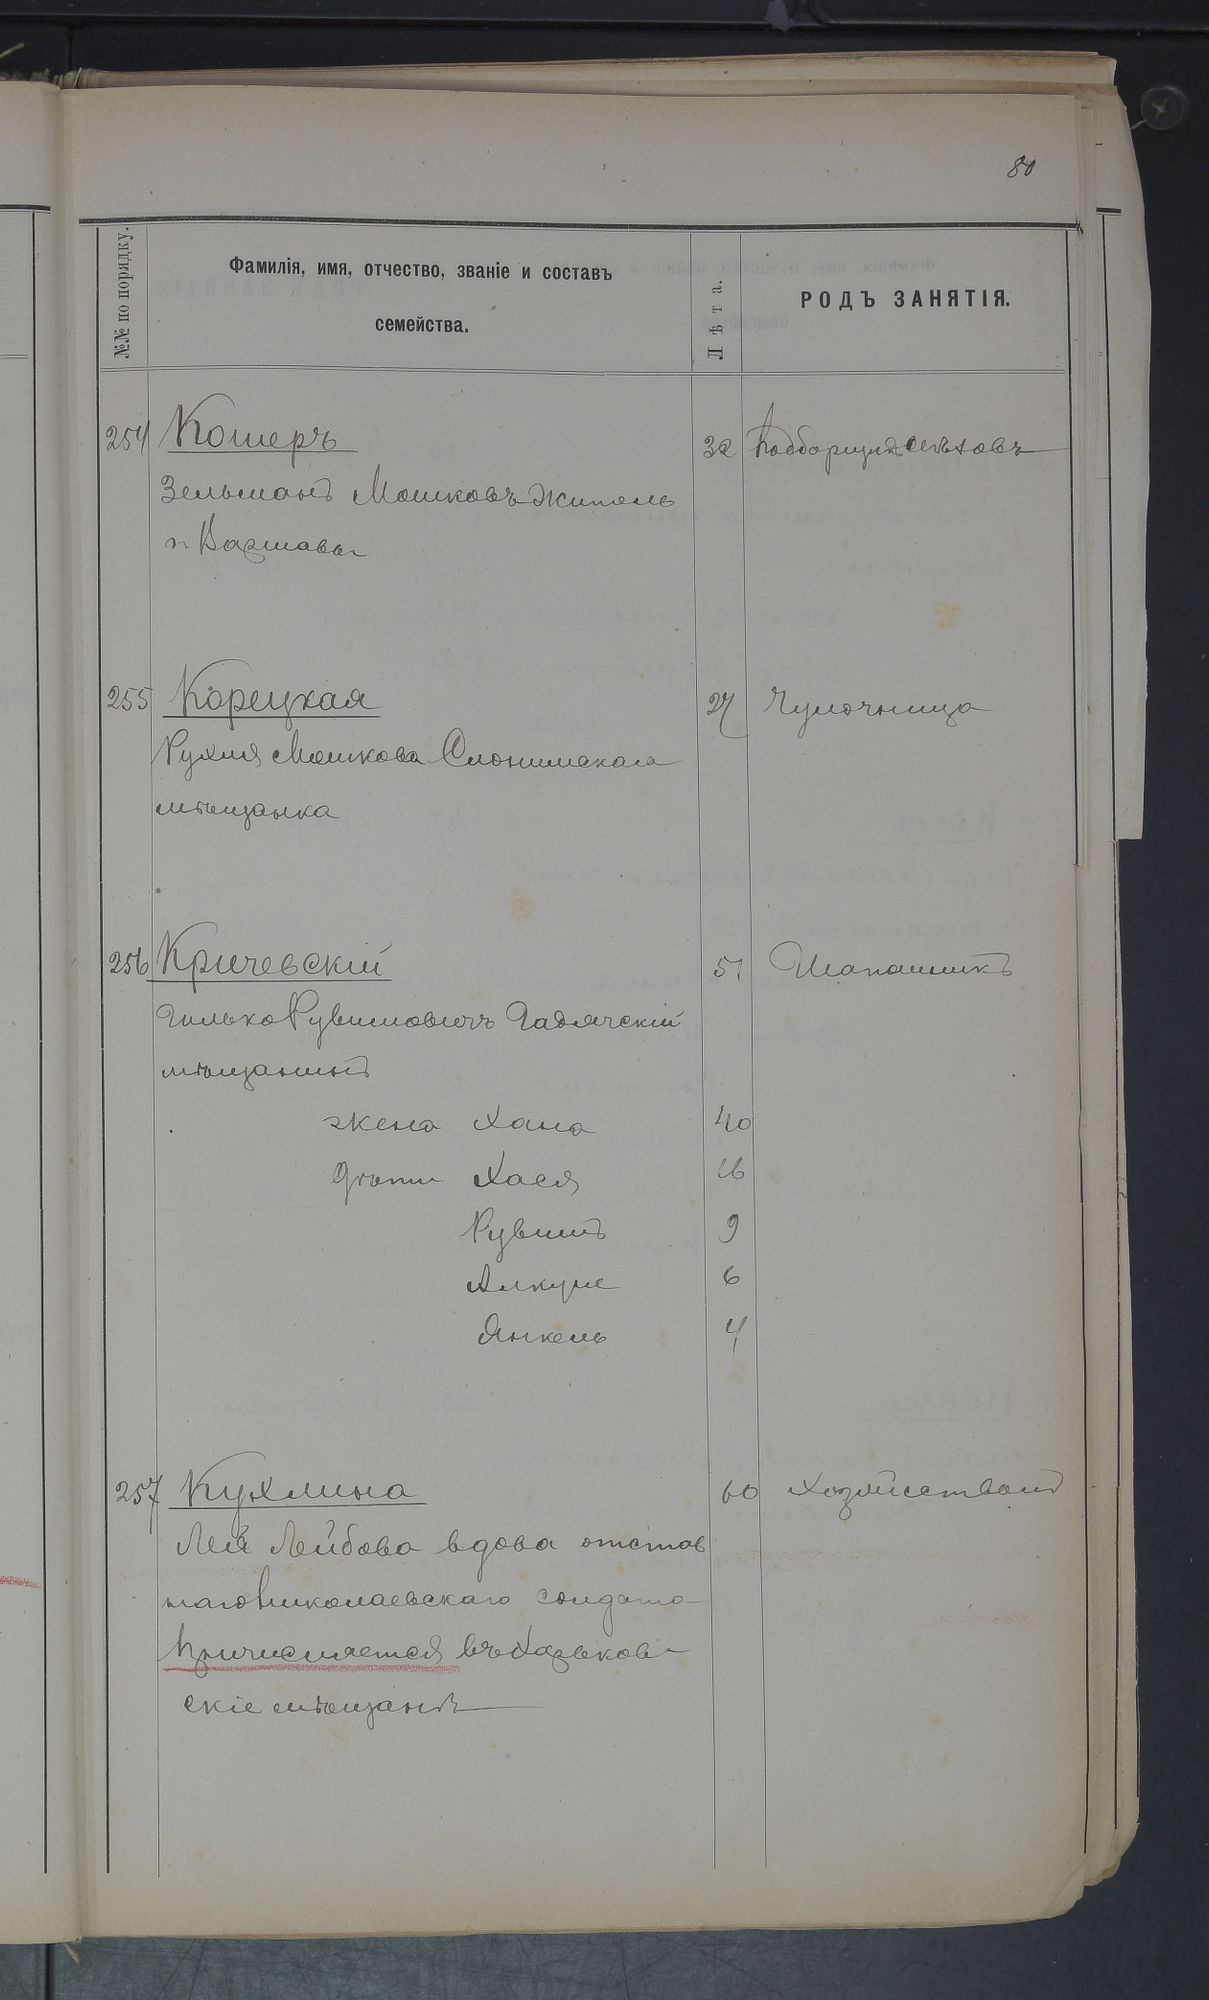 80
№№ по порядку.
Фамилія, имя, отчество, званіе и составъ
семейства.
Лѣта.
РОДЪ ЗАНЯТІЯ.
254 Кошеръ 32 Подборщикъ мѣховъ
Зельманъ Мошковъ житель
г. Варшавы
255 Корецкая 27 Чулочница
Рухля Мошкова Слонимская
мѣщанка
256 Кричевскій 51 Шапошникъ
Гилько Рувимовичъ Гадячскій
мѣщанинъ
жена Хана 40
дѣти Хася 16
Рувимъ 9
6
Янкель 4
257 Кухлина 60 Хозяйствомъ
Лея Лейбова вдова отстав
наго Николаевскаго солдата
Причисляется въ Харьков-
скіе мѣщане